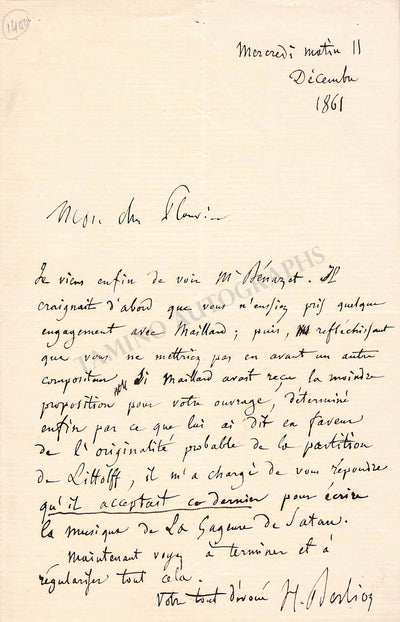 1400
Mercredi matin 11
Décembre
1861
Mon cher
Je viens enfin de voir Mr Bénazet. Il
craignait d'abord que vous n'eussiez pris quelque
engagement avec Maillard ; puis, refléchissant
que vous ne mettriez pas en avant un autre
compositeur si Maillard avait reçu la moindre
proposition pour votre ouvrage, déterminé
enfin par ce que lui ai dit en faveur
de l'originalité probable de la partition
de Littolff, il m'a chargé de vous répondre
qu'il acceptait ce dernier pour écrire
la musique de La Gageure de Satan.
Maintenant voyez à terminer et à
régulariser tout cela.
Votre tout dévoué H. Berlioz
TAMINO AUTOGRAPHS